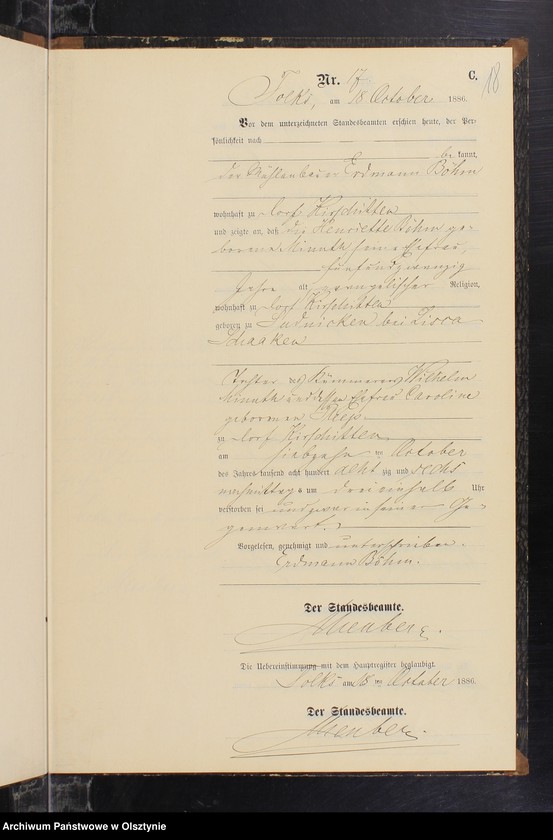 Nr. 17
C.
18
Tolks, am 18 October 1886.
Vor dem unterzeichneten Standesbeamten erschien heute, der Per-
sönlichkeit nach
be kannt,
der Mühlenbauer Erdmann Böhm
wohnhaft zu Dorf Kirschitten
und zeigte an, daß die Henriette Böhm ge-
borene Minuth seine Ehefrau,
fünfundzwanzig
Jahre alt, evangelischer Religion,
wohnhaft zu Dorf Kirschitten
geboren zu Sudnicken bei Lisca
Schaaken
Tochter des Kämmerers Wilhelm
Minuth und dessen Ehefrau Caroline
geborenen
zu Dorf Kirschitten
am siebzehn ten October
des Jahres tausend acht hundert acht zig und sechs
nachmittags um drei einhalb Uhr
verstorben sei und zwar in seiner Ge-
genwart.
Vorgelesen, genehmigt und unterschrieben.
Erdmann Böhm.
Der Standesbeamte.
Die Uebereinstimmung mit dem Hauptregister beglaubigt.
Tolks am 18 ten October 1886.
Der Standesbeamte.
Archiwum Państwowe w Olsztynie